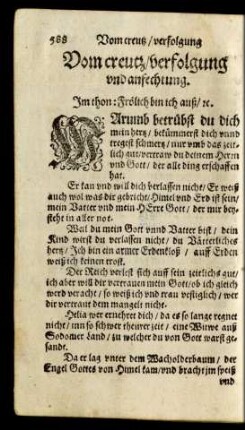 588 Vom creutz / verfolgung
Vom creutz / verfolgung
vnd anfechtung.
Im thon: Frölich bin ich auß / ꝛc.
WArumb betrübst du dich
mein hertz / bekümmerst dich vnnd
tregest schmertz / nur vmb das zeit-
lich gut / vertraw du deinem Herrn
vnd Gott / der alle ding erschaffen
hat.
Er kan vnd will dich verlassen nicht / Er weiß
auch wol was dir gebricht / Himel vnd Erd ist sein /
mein Vatter vnd mein HErre Gott / der mir bey-
steht in aller not.
Weil du mein Gott vnnd Vatter bist / dein
Kind wirst du verlassen nicht / du Vätterliches
hertz / Ich bin ein armer Erdenkloß / auff Erden
weiß ich keinen trost.
Der Reich verlest sich auff sein zeitlichs gut /
ich aber will dir vertrauen mein Gott / ob ich gleich
werd veracht / so weiß ich vnd trau vestiglich / wer
dir vertraut dem mangelt nicht.
Helia wer ernehret dich / da es so lange regnet
nicht / inn so schwer theurer zeit / eine Witwe auß
Sodomer Land / zu welcher du von Gott warst ge-
sandt.
Da er lag vnter dem Wacholderbaum / der
Engel Gottes von Himel kam / vnd bracht jm speiß
vnd